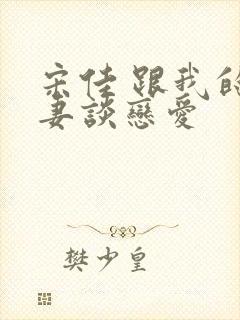 宋佳跟我的
妻談戀愛
樊少皇